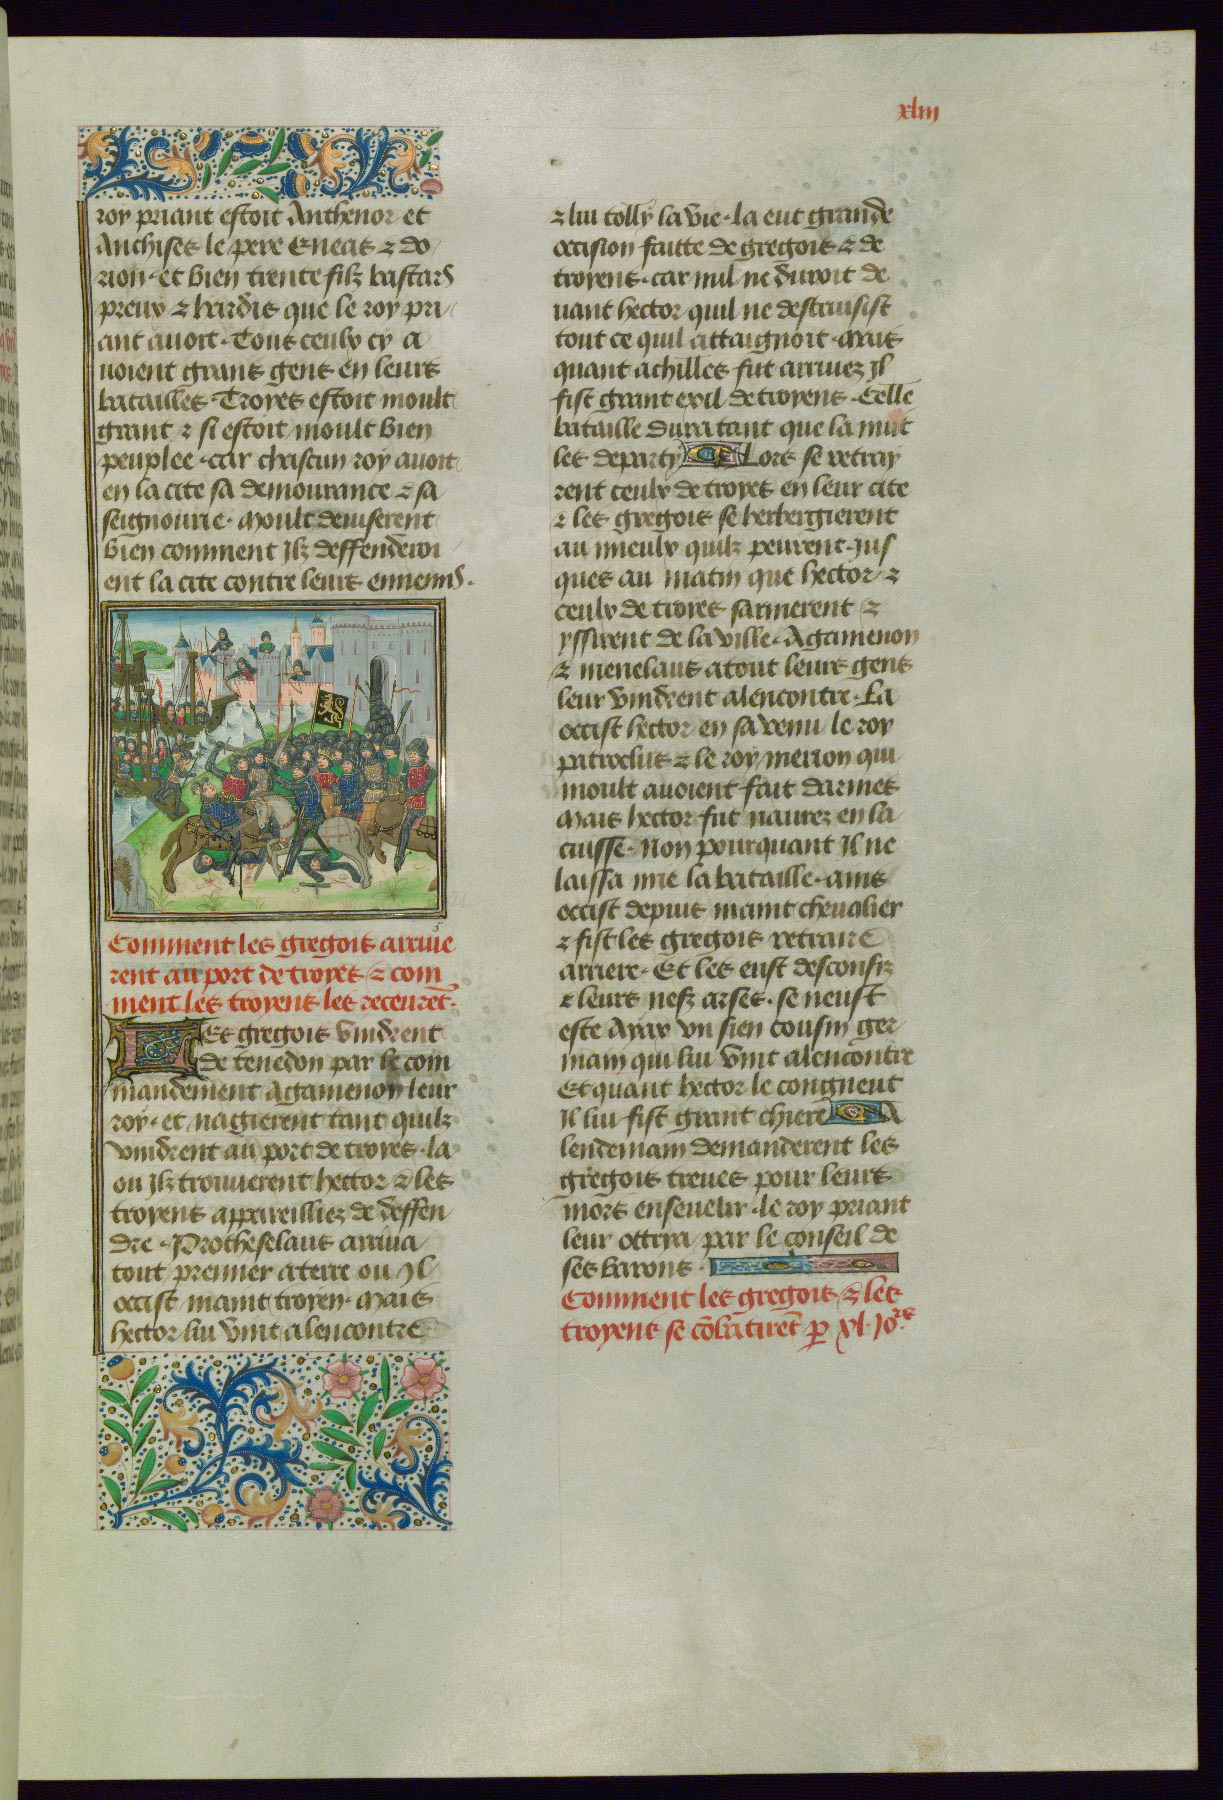 43
xliii
roy priant estoit Anthenor et
Anchises le pere Eneas ⁊ do
rion · et bien trente filz bastars
preux ⁊ hardis que le roy pri
ant auoit · Tous ceulx cy a
uoient grans gens en leurs
batailles · Troyes estoit moult
grant ⁊ si estoit moult bien
peuplee · car chascun roy auoit
en la cite sa demourance ⁊ sa
seignourie · Moult deuiserent
bien comment Jlz deffenderoi
ent la cite contre leurs ennemis ·
Comment les gregois arriue
rent au port de troyes ⁊ com
ment les troyens les receurẽt ·
Les gregois vindrent
de tenedon par le com
mandement Agamenon leur
roy · et nagierent tant quilz
vindrent au port de troyes · la
ou Jlz trouuerent hector ⁊ les
troyens appareilliez de deffen
dre · Protheselaus arriua
tout premier a terre ou Jl
occist maint troyen · Mais
hector lui vint alencontre
⁊ lui tolly la vie · la eut grande
occision faitte de gregois ⁊ de
troyens · car nul ne duroit de
uant hector quil ne destruisist
tout ce quil attaignoit · Mais
quant achilles fut arriuez Jl
fist grant exil de troyens · Celle
bataille dura tant que la nuit
les departy Lors se retray
rent ceulx de troyes en leur cite
⁊ les gregois se herbergierent
au mieulx quilz peurent · Jus
ques au matin que hector ⁊
ceulx de troyes sarmerent ⁊
yssirent de la ville · Agamenon
⁊ menelaus a tout leurs gens
leur vindrent alencontre · La
occist hector en sa venu le roy
patroclus ⁊ le roy merion qui
moult auoient fait darmes
Mais hector fut naurez en la
cuisse · Non pourquant Jl ne
laissa mie la bataille · ains
occist depuis maint cheualier
⁊ fist les gregois retraire
arriere · Et les eust desconfiz
⁊ leurs nefz arses · se neust
este Ayax vn sien cousin ger
main qui lui vint alencontre
Et quant hector le congneut
Jl lui fist grant chiere A
lendemain demanderent les
gregois treues pour leurs
mors enseuelir · le roy priant
leur ottrya par le conseil de
ses barons ·
Comment les gregois ⁊ les
troyens se cõbatirẽt ꝑ xl · Jo^rs